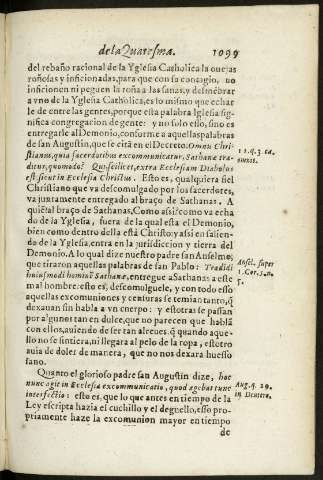 de la Quaresma. 1099
del rebaño racional de la Yglesia Catholica la ouejas
roñosas y inficionadas, para que con su contagio, no
inficionen ni peguen la roña a las sanas, y desmẽbrar
a vno de la Yglesia Catholica, es lo mismo que echar
le de entre las gentes, porque esta palabra Iglesia sig-
nifica congregacion de gente: y no solo esso, sino es
entregarle al Demonio, conforme a aquellas palabras
de san Augustin, que se cità en el Decreto. Omnis Chri-
stianus, quia sacerdotibus excommunicatur, Sathanæ tra-
ditur, quomodo? Quia scilicet, extra Ecclesiam Diabolus
est sicut in Ecclesia Christus. Esto es, qualquiera fiel
Christiano que va descomulgado por los sacerdotes,
va juntamente entregado al braço de Sathanas. A
quié? al braço de Sathanas, Como assi? como va echa
do de la Yglesia, fuera de la qual esta el Demonio,
bien como dentro della està Christo: y assi en salien-
do de la Yglesia, entra en la jurisdiccion y tierra del
Demonio. A lo qual dize nuestro padre san Anselmo;
que tiraron aquellas palabras de san Pablo: Tradidi
huiusmodi hominẽ Sathanæ, entregue a Sathanas a este
mal hombre: esto es, descomulguele, y con todo esso
aquellas excomuniones y censuras se temian tanto, q̃
dexauan sin habla a vn cuerpo: y estotras se passan
por algunos tan en dulce, que no parecen que hablã
con ellos, auiendo de ser tan al reues, q̃ quando aque-
llo no se sintiera, ni llegara al pelo de la ropa, estotro
auia de doler de manera, que no nos dexara huesso
sano.
Quanto el glorioso padre san Augustin dize, hoc
nunc agit in Ecclesia excommunicatio, quod agebat tunc
interfectio: esto es, que lo que antes en tiempo de la
Ley escripta hazia el cuchillo y el deguello, esso pro-
priamente haze la excomunion mayor en tiempo
de
11. q. 3. ca.
omnis.
Ansel. super
1. Cor. 5. n.
5.
Aug. q. 29.
in Deutero.